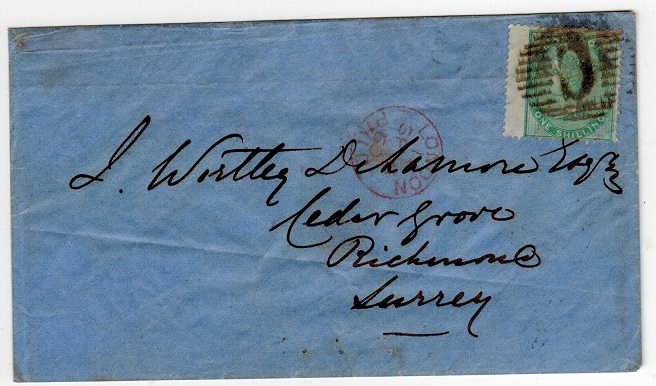 ONE SHILLING
LONDON
PAID
J. Wortley De la more Esqr
Cedar Grove
Richmond
Surrey